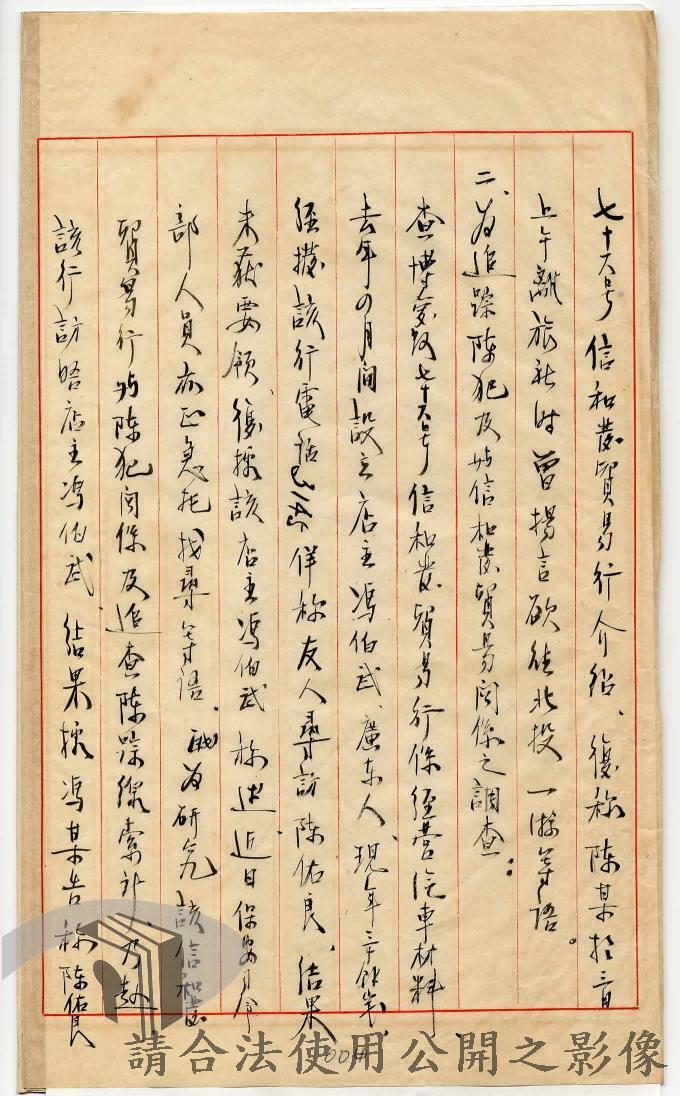 七十六号信和發貿易行介紹、復称陳某於三日
上午離旅社時曾揚言欲往北投一游等語。
二、為追踪陳犯及與信和發貿易関係之調查：
查博愛路七十六号信和發貿易行係經營汽車材料
去年四月間設立店主馮伯武、廣東人、現年三十餘歲、
經撥該行電話3145佯称友人尋訪陳佑良、結果
未获要領、復據該店主馮伯武称述近日保安司令
部人員亦正急於找尋等語、职為研究該信和發
貿易行與陳犯関係及追查陳踪線索計、乃赴
該行訪晤店主馮伯武結果據馮某告称陳佑良
請合法使用公開之影像